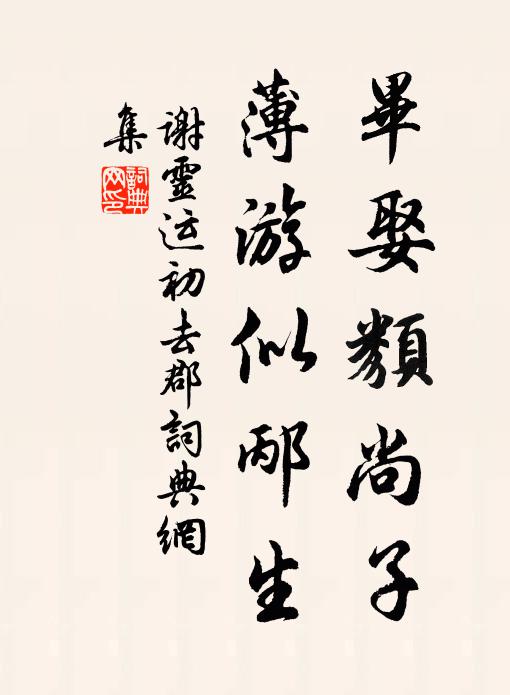 畢娶類尚子
薄游似邴生
謝靈运初去郡詞典網
集
詞典
网印